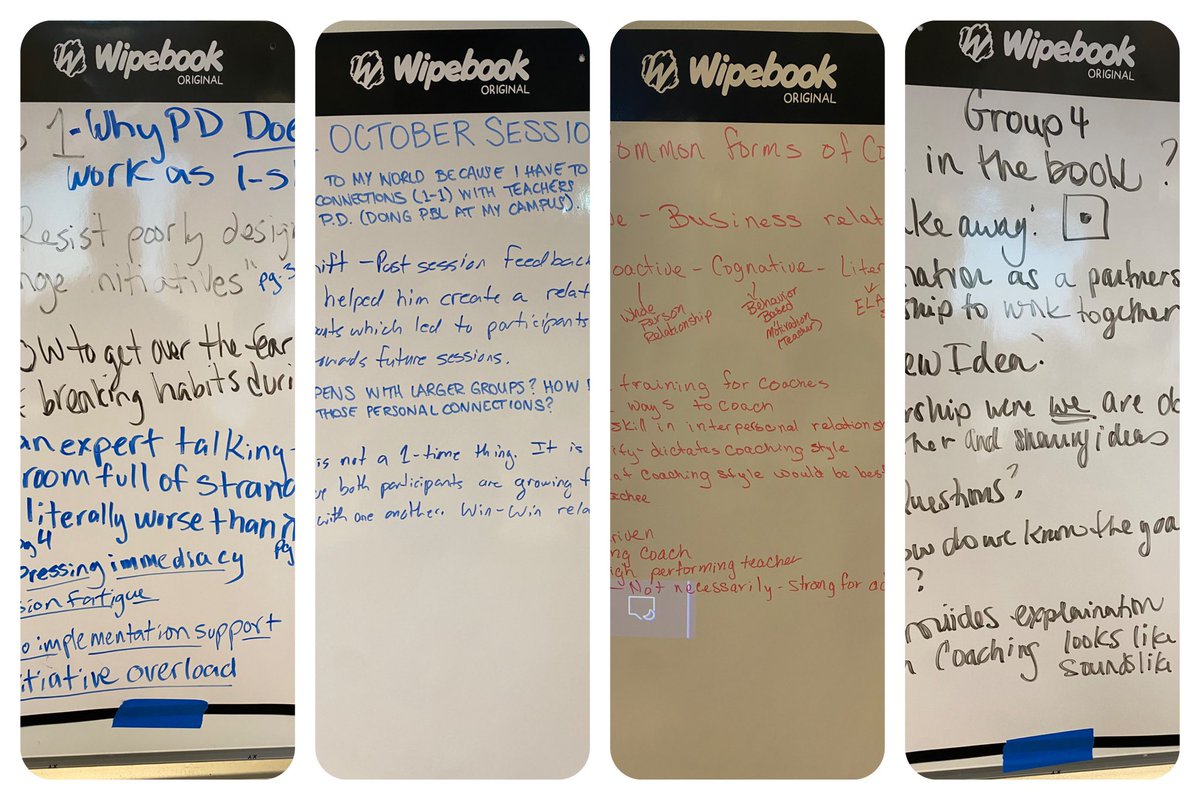 Wipebook
ORIGINAL
1-Why PD Doe
work as 1-s
Resist poorly desig
nge initiatives" pg.3
OW to get over the fear
breaking habits duri
an expert talking
room full of stran
literally worse than
pg4
pressing immediacy pg
sion fatigue
o implementation support
itiative overload
Wipebook
ORIGINAL
OCTOBER SESSIO
TO MY WORLD BECAUSE I HAVE TO
CONNECTIONS (1-1) WITH TEACHERS
P.D. (DOING PBL AT MY CAMPUS).
ift - Post session feedback
helped him create a relat
uts which led to participants
owards future sessions.
PENS WITH LARGER GROUPS? HOW
THOSE PERSONAL CONNECTIONS?
is not a 1-time thing. It is
both participants are growing
with one another. Win-Win rela
Wipebook
ORIGINAL
ommon forms of Co
e - Business relat
oactive - Cognative - Liter
Whole Person Relationship
Behavior Based Motivation Teacher
ELA
training for coaches
ways to coach
skill in interpersonal relationsh
ify - dictates coaching style
at coaching style would be bes
achee
riven
ng coach
igh performing teacher
- Not necessarily - strong for a
Wipebook
ORIGINAL
Group 4
in the book ?
ke away:
nation as a partners
ship to work together
ew Idea:
ership were we are do
her and sharing ideas
Questions?
ow do we know the goa
?
rovides explaination
n Coaching looks like
sounds like